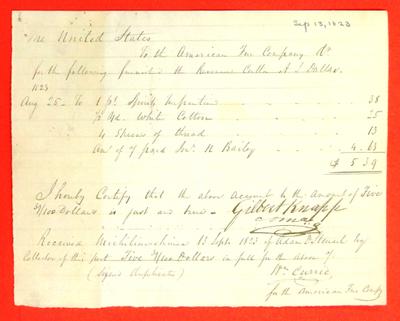 Sep 13, 1823
The United States
To the American Fur Company Dr
for the following furnished the Revenue Cutter A J Dallas.
1823
Aug 25 - To 1 pt Spirits Turpentine 38
Yd. White Cotton 25
4 Skeins of thread 13
Amt of paid Jno. R Bailey 4.63
$ 5.39
I hereby Certify that the above account to the amount of Five
39/100 Dollars is just and true - Gilbert Knapp
Received Michilimackinac 13 Sept. 1823 of Adam D Steuart Esq
Collector of this port Five 39/100 Dollars in full for the above
(Signed Duplicates) Wm Currie
for the American Fur Compy